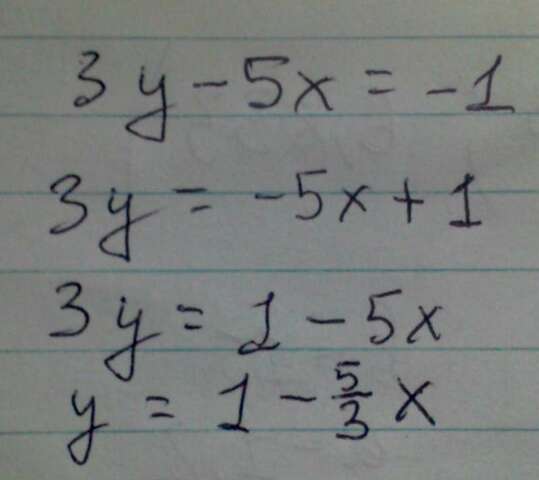 3y - 5x = -1
3y = -5x + 1
3y = 1 - 5x
y = 1 - 5/3 x